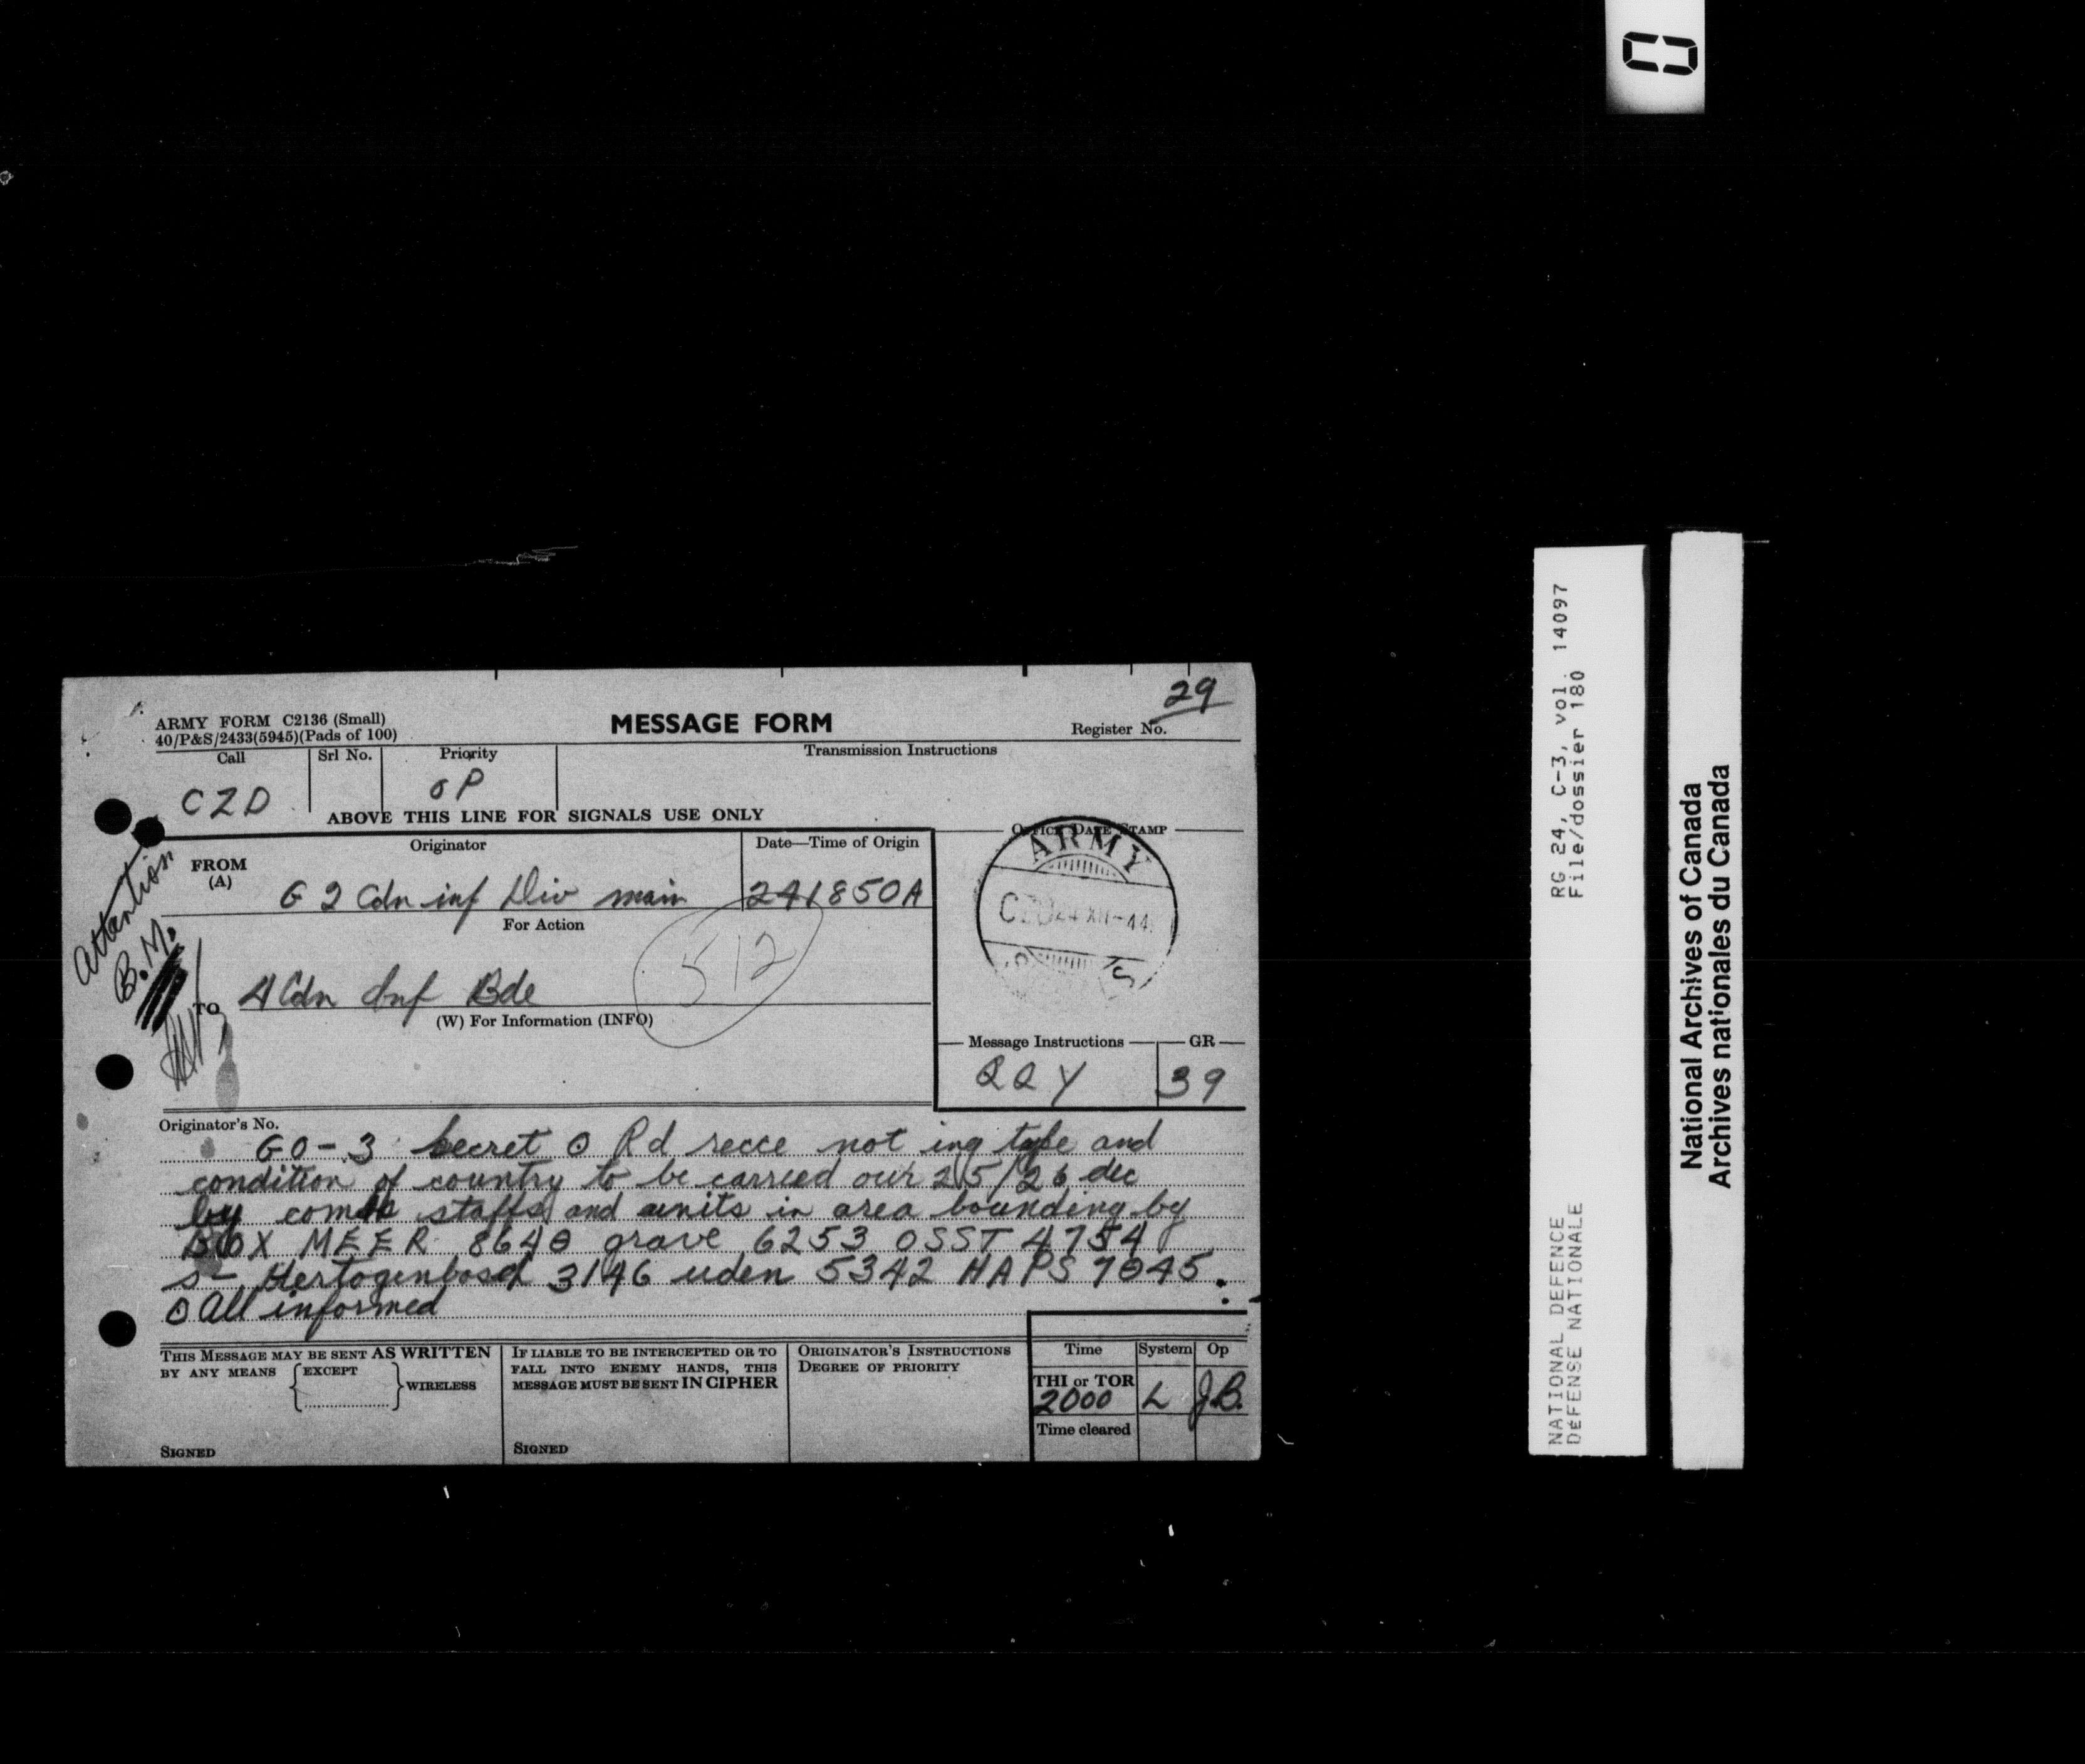 29
ARMY FORM C2136 (Small)
40/P&S/2433(5945)(Pads of 100)
MESSAGE FORM
Register No.
Call
Srl No.
Priority
Transmission Instructions
CZD
OP
ABOVE THIS LINE FOR SIGNALS USE ONLY
Originator
Date—Time of Origin
OFFICE DATE STAMP
ARMY
24 XII-44
S
FROM
(A)
G 2 Cdn inf Div main
241850A
For Action
Attention
B.M.
512
TO
4 Cdn Inf Bde
(W) For Information (INFO)
Message Instructions
GR
QQY
39
Originator's No.
GO-3 Secret O Rd recce not ing type and
condition of country to be carried our 25/26 dec
by comds staffs and units in area bounding by
BOX MEER 8640 grave 6253 OSST 4754
s- Hertogenbosch 3146 uden 5342 HAPS 7045.
O All informed
THIS MESSAGE MAY BE SENT AS WRITTEN
BY ANY MEANS
EXCEPT
WIRELESS
SIGNED
IF LIABLE TO BE INTERCEPTED OR TO
FALL INTO ENEMY HANDS, THIS
MESSAGE MUST BE SENT IN CIPHER
SIGNED
ORIGINATOR'S INSTRUCTIONS
DEGREE OF PRIORITY
Time
System
Op
THI or TOR
2000
L
J.B.
Time cleared
RG 24, C-3, vol. 14097
File/dossier 180
NATIONAL DEFENCE
DÉFENSE NATIONALE
National Archives of Canada
Archives nationales du Canada